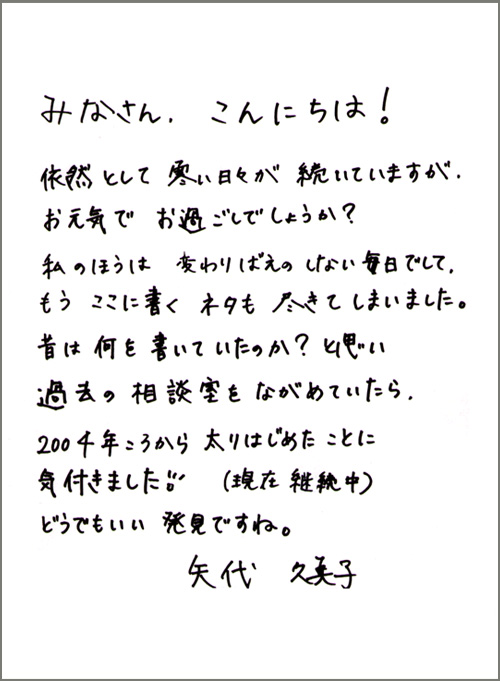 みなさん、こんにちは!
依然として寒い日々が続いていますが、
お元気でお過ごしでしょうか?
私のほうは変わりばえのしない毎日でして、
もうここに書くネタも尽きてしまいました。
昔は何を書いていたのか?と思い
過去の相談室をながめていたら、
2004年ころから太りはじめたことに
気付きました!! (現在継続中)
どうでもいい発見ですね。
矢代 久美子